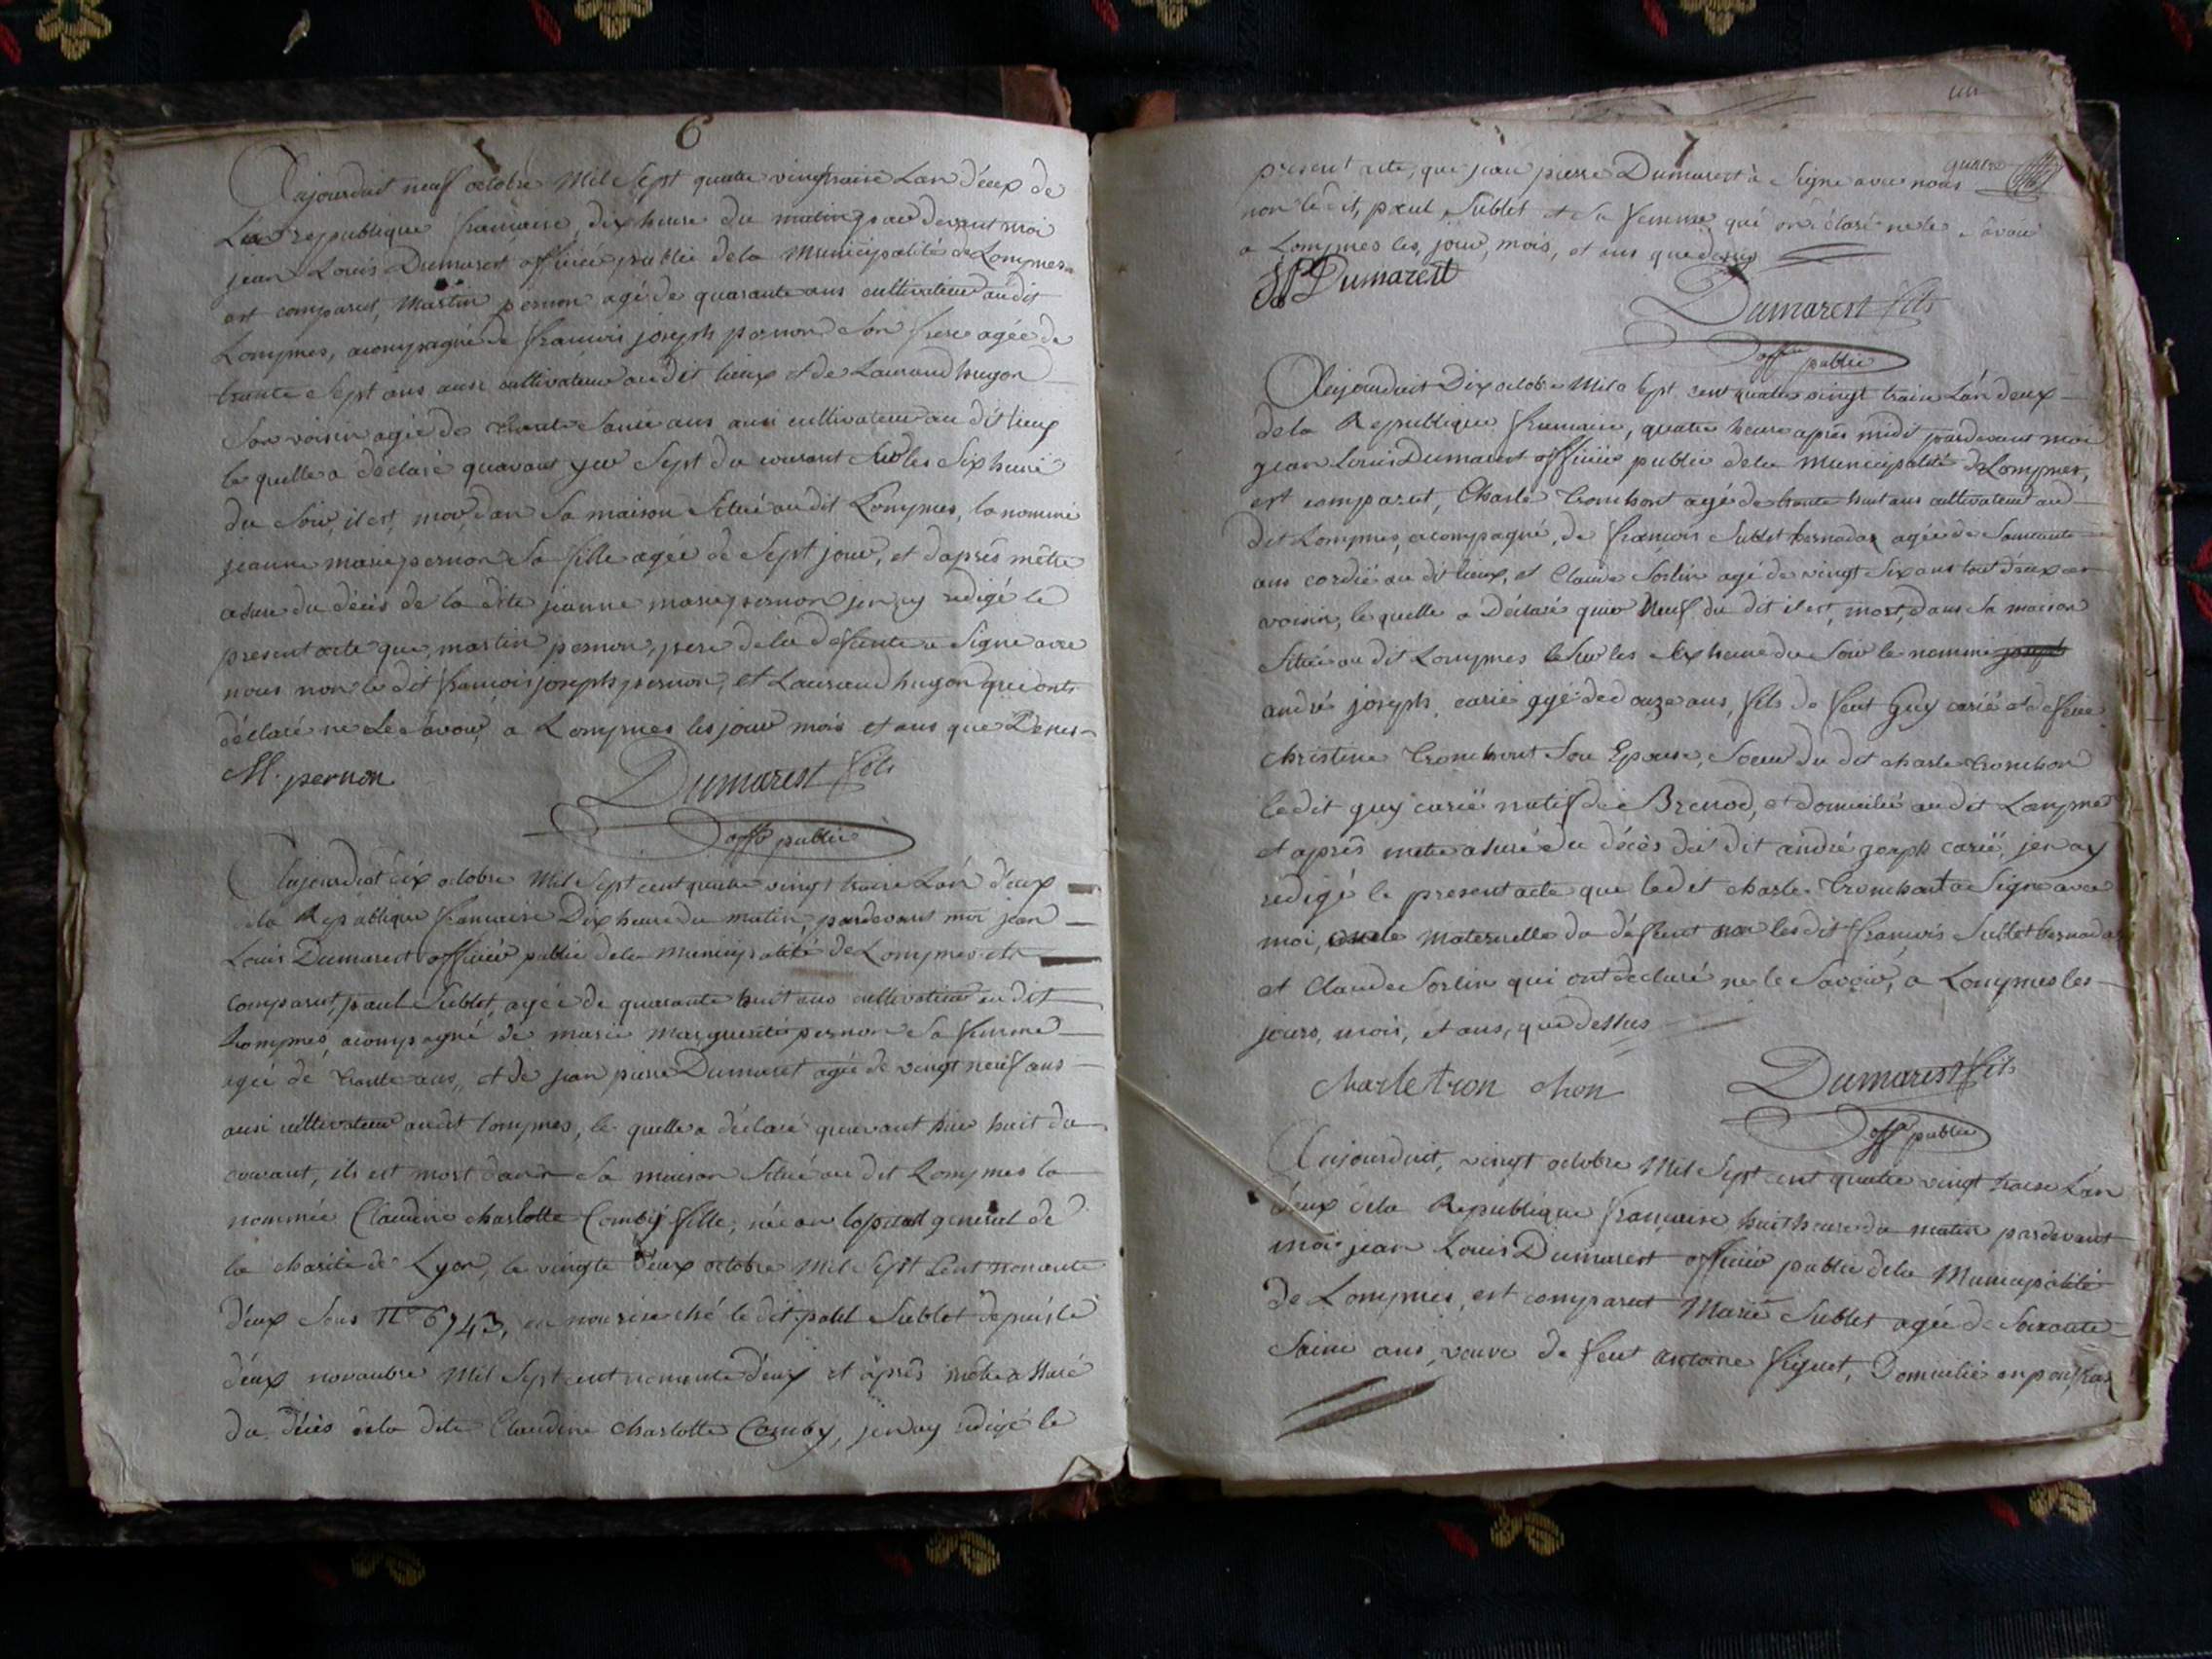 6
Aujourduit neuf octobre Mil Sept quatre vingtraise Lan d'eux de
La republique francaise, dix heure du matin par devant moi
jean Louis Dumarest officié public de la Municipalité de Lompnes
est comparut, Martin pernon agé de quarante ans cultivateur audit
Lompnes, acompagné de francois joseph pernon de son frere agée de
trante Sept ans ausi cultivateur au dit lieux et de Laurand hugon
Son voisin agée de ans ausi cultivateur au dit lieux
le quelle a déclaré quavant yer Sept du courant Sur les Six heure
du Soir, il est, mor dan Sa maison Situé au dit Lompnes, la nommé
jeanne marie pernon Sa fille agée de Sept jour, et daprés mêtre
asure du décés de la dite jeanne marie pernon jen ay redigé le
present acte que, martin pernon, pere de la deffunte a Signé avec
nous non le dit francois joseph pernon, et Laurand hugon qui onts
déclaré ne le Savoir, a Lompnes les jour mois et ans que Desus
M. pernon
Dumarest fils
offe public
Aujourduit dix octobre Mil Sept cent quatre vingt traise Lan d'eux
de la Republique francaise Dix heure du matin, pardevant moi jean
Louis Dumarest officiér public de la Municipalité de Lompnes est
comparut, paul Sublet, agée de quarante huit ans cultivateur audit
Lompnes, acompagné de marie marguerite pernon Sa femme
agée de trante ans, et de jean pierre Dumarest agée de vingt neuf ans
ausi cultivateur audit Lompnes, le quelle a déclaré quavant hier huit du
courant, ils est mort dans Sa maison Situé au dit Lompnes la
nommée Claudine charlotte Comby fille, née a lopital general de
la charité de Lyon, le vingte deux octobre Mil Sept Cent nonante
d'eux Sous no 6743, en nourise ché le dit paul Sublet depuis le
d'eux novambre Mil Sept cent nonante d'eux et aprés mêtre assuré
du décés de la dite Claudine charlotte Comby, jen ay redigé le
7
quatre
present acte, que jean pierre Dumarest à Signé avec nous
non le dit, paul Sublet et Sa femme qui on déclaré ne le Savoir
a Lompnes les, jour, mois, et ans que desus
JP Dumarest
Dumarest fils
offe public
Aujourduit Dix octobre Mil Sept cent quatre vingt traise Lan deux
de la Republique francaise, quatre heure aprés midi pardevant moi
jean Louis Dumarest officié public de la Municipalité de Lompnes,
est comparut, Charle Tronchont agé de trante huit ans cultivateur au
dit Lompnes, acompagné, de francois Sublet bernadaz agée de Soixante
ans cordié au dit lieux, et Claude Sorlin agé de vingt Six ans tout deux
voisin, le quelle a Déclaré quier Neuf du dit il est, mort, dans Sa maison
Situé au dit Lompnes Sur les Six heure du Soir le nommé joseph
andré joseph carié agé de douze ans, fils de feut Guy carié et de feue
christine Tronchont Son Epouse, Soeur du dit charle tronchon
le dit guy carié natif de Brenod, et domicilié au dit Lompnes
et aprés mêtre asuré du décés du dit andré joseph carié, jen ay
redigé le present acte que le dit charle Tronchont a Signé avec
moi, oncle Maternelle du deffunt non les dit francois Sublet bernadaz
et Claude Sorlin qui ont déclaré ne le Savoir, a Lompnes les
jours, mois, et ans, que dessus
Charle tron chon
Dumarest fils
offe public
Aujourduit, vingt octobre Mil Sept cent quatre vingt traise Lan
deux de la Republique francaise huit heure du matin pardevant
moi jean Louis Dumarest officiér public de la Municipalité
de Lompnes, est comparut Marie Sublet agée de Soixante
ans, veuve de feut antoine figuet, Domicilié